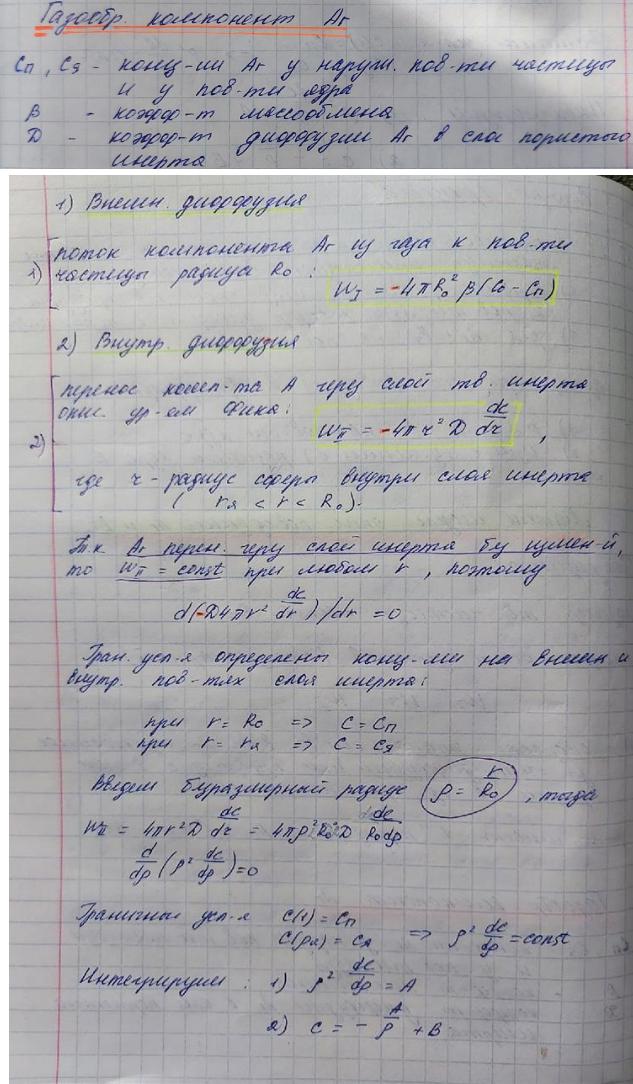 Газообр. компонент Аг
Сп, Ся - конц-ии Аг у наруж. пов-ти частицы
и у пов-ти ядра
β - коэфф-т массообмена
D - коэфф-т диффузии Аг в слое пористого
инерта
1) Внешн. диффузия
поток компонента Аг из газа к пов-ти
1) частицы радиуса R₀ :
W_I = -4πR₀² β (C₀ - Cп)
2) Внутр. диффузия
перенос комп-та А через слой тв. инерта
опис. ур-ем Фика: W_II = -4πr² D dc/dr ,
2)
где r - радиус сферы внутри слоя инерта
( rя < r < R₀).
Т.к Аг перен. через слой инерта без измен-й,
то W_II = const при любом r , поэтому
d(-D4πr² dc/dr)/dr = 0
Гран. усл-я определены конц-ми на внешн и
внутр. пов-тях слоя инерта:
при r = R₀ => C = Cп
при r = rя => C = Cя
Введем безразмерный радиус ρ = r/R₀ , тогда
W_II = 4πr²D dc/dr = 4πρ²R₀²D dc/R₀dρ
d/dρ (ρ² dc/dρ) = 0
Граничные усл-я C(1) = Cп
C(ρя) = Cя => ρ² dc/dρ = const
Интегрируем : 1) ρ² dc/dρ = A
2) C = - A/ρ + B